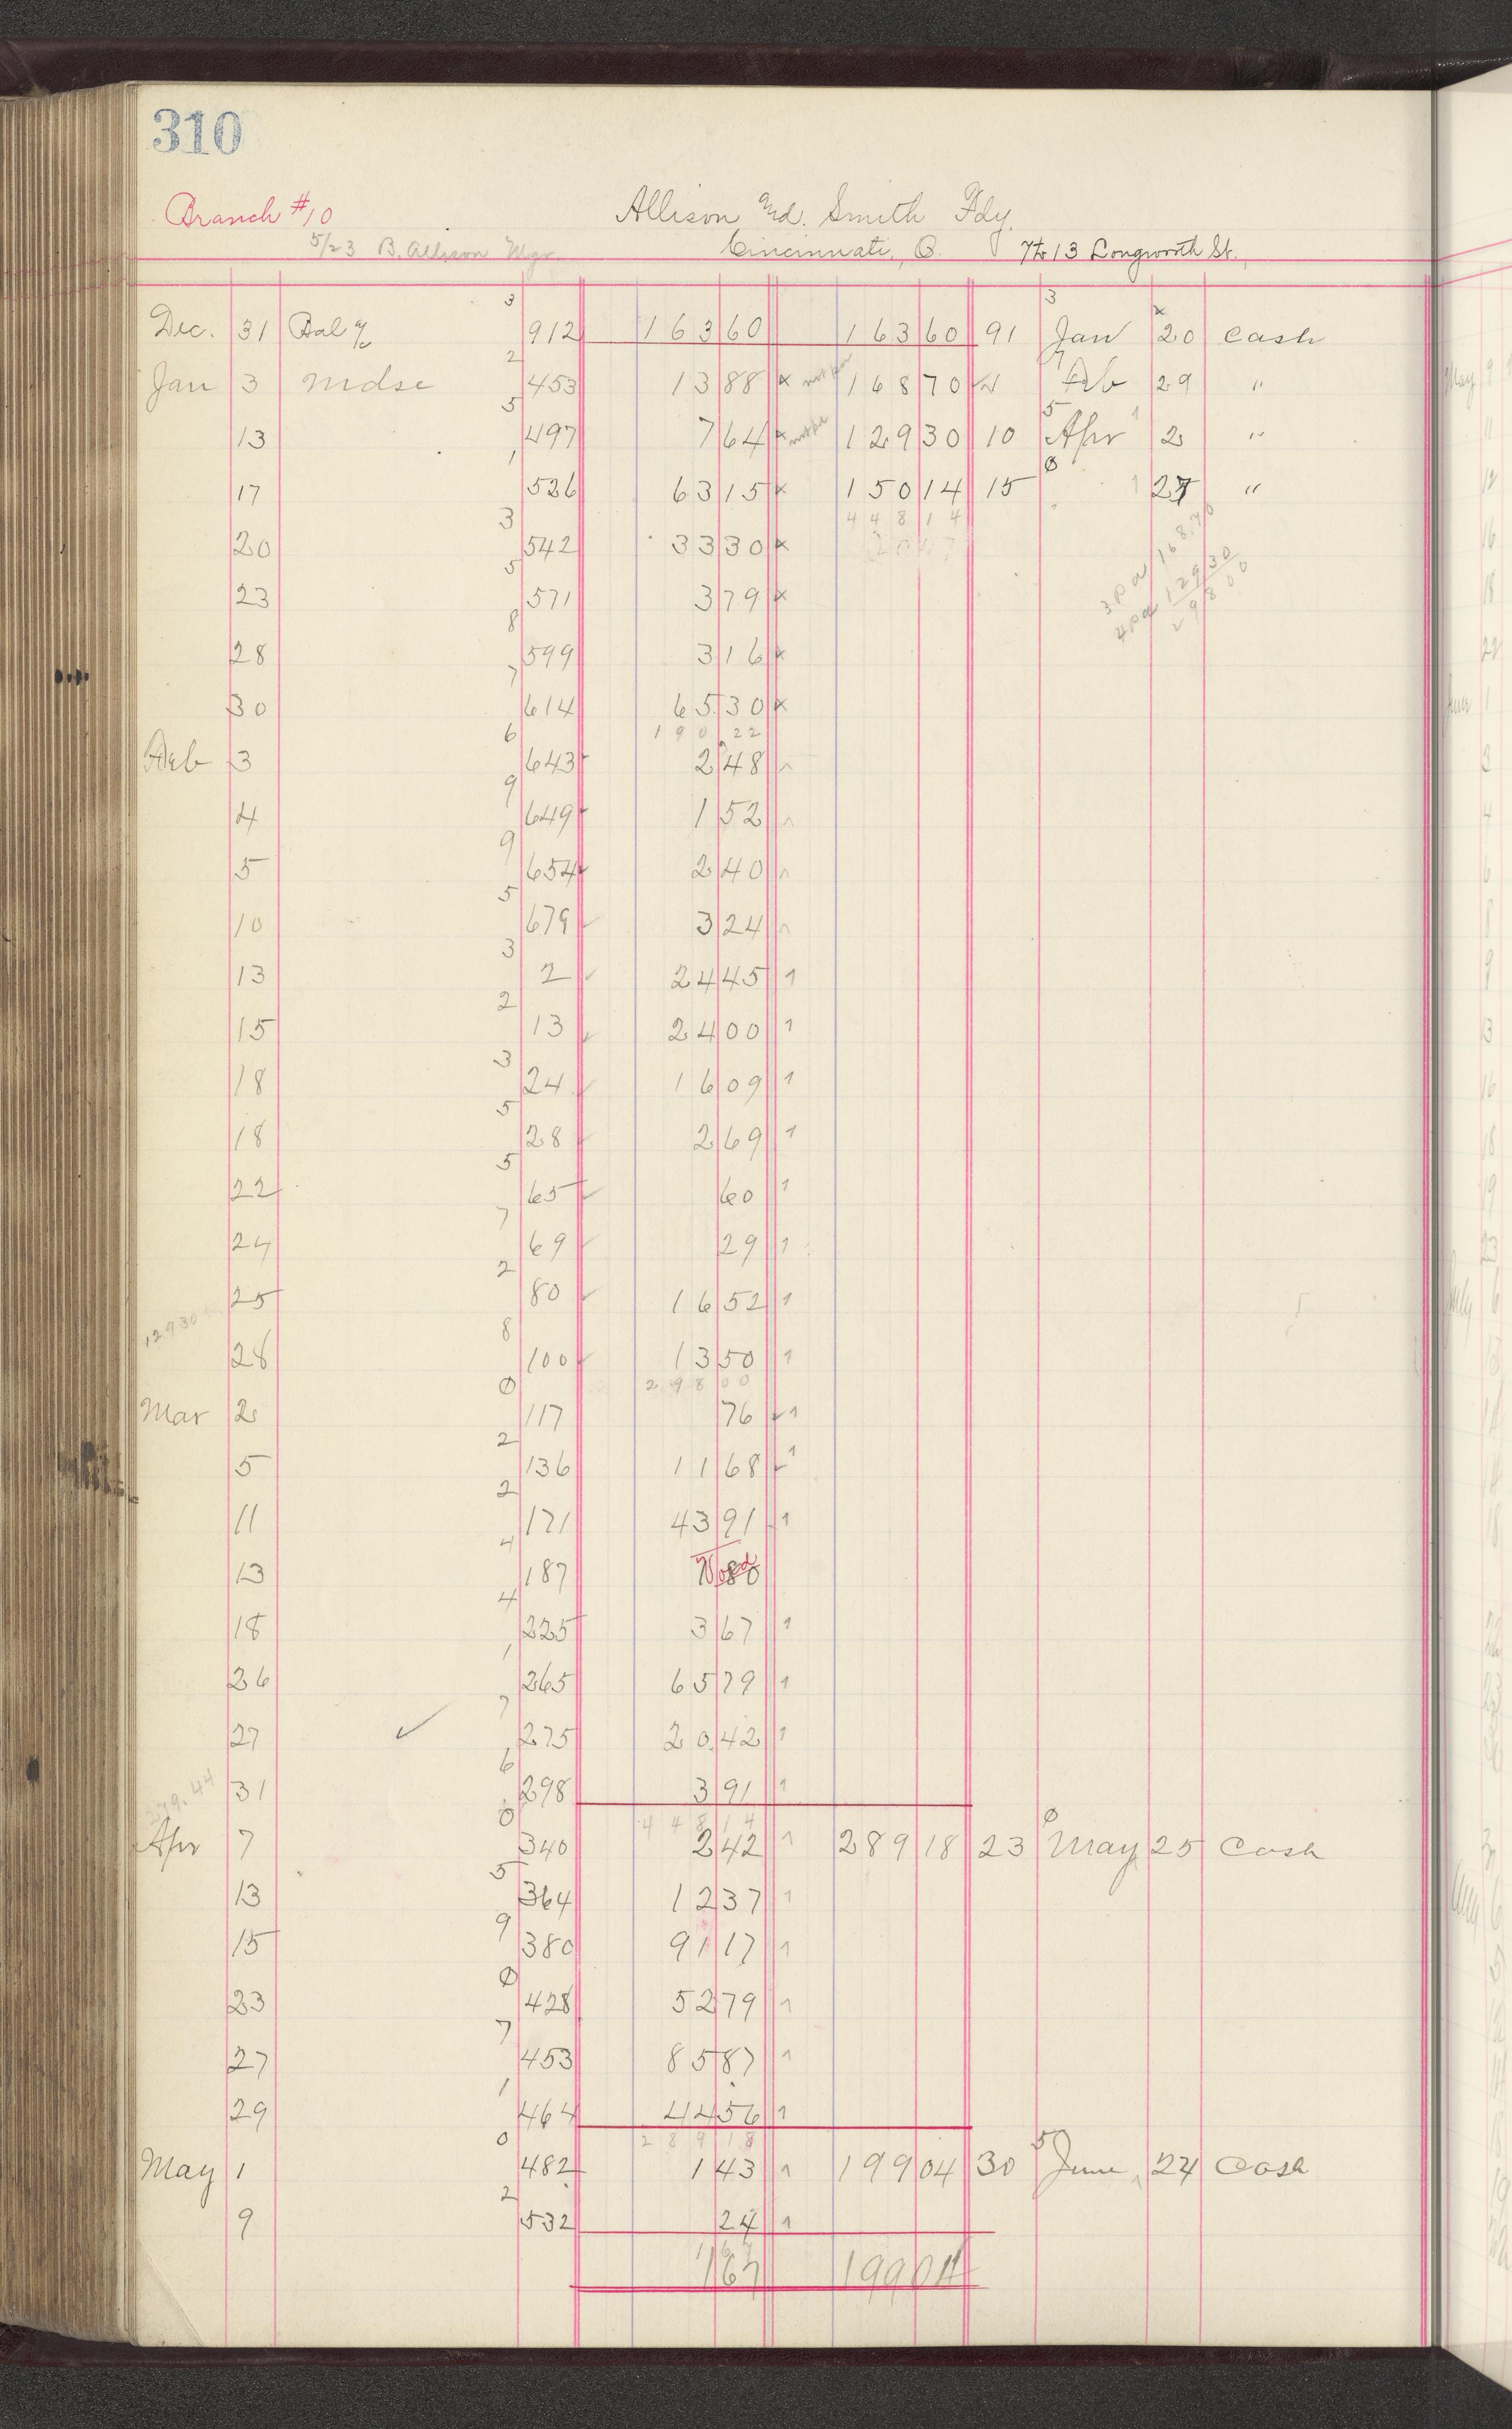 310
Branch #10 Allison Smith Fdy.
5/23 B. Allison Mgr. Cincinnati, O. 7 to 13 Longworth St.
3 3
Dec. 31 Bal 912 163 60 163 60 91 Jan 20 Cash
2
Jan 3 Mdse 453 13 88 x 168 70 Feb 29 "
5 5
13 497 7 64 x 129 30 10 Apr 2 "
1 0
17 526 63 15 x 150 14 15 27 "
448 14
3
20 542 33 30 x
5
23 571 3 79 x 3 pd 168.70
4 pd 129 30
298 00
8
28 599 3 16 x
7
30 614 65 30 x
190.22
6
Feb 3 643 2 48
9
4 649 1 52
9
5 654 2 40
5
10 679 3 24
3
13 2 24 45 1
2
15 13 24 00 1
3
18 24 16 09 1
5
18 28 2 69 1
5
22 65 60 1
7
24 69 29 1
2
25 80 16 52 1
12930
8
28 100 13 50 1
298 00
0
Mar 2 117 76 1
2
5 136 11 68 1
2
11 171 43 91 1
4
13 187 Void
4
18 225 3 67 1
1
26 265 65 79 1
7
27 275 20.42 1
6
31 298 3 91 1
448 14
0 0
Apr 7 340 2 42 1 289 18 23 May 25 Cash
5
13 364 12 37 1
9
15 380 91 17 1
0
23 428 52 79 1
7
27 453 85 87 1
1
29 464 44 56 1
289 18
0 5
May 1 482 1 43 1 199 04 30 June 24 Cash
2
9 532 24 1
1 67 199 04